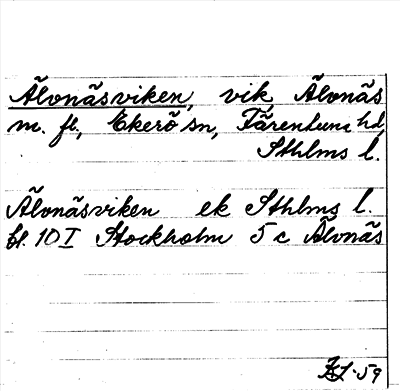 Älvnäsviken, vik, Älvnäs
m. fl., Ekerö sn, Färentuna hd,
Sthlms l.
Älvnäsviken ek Sthlms l.
bl. 10 I Stockholm 5 c Älvnäs